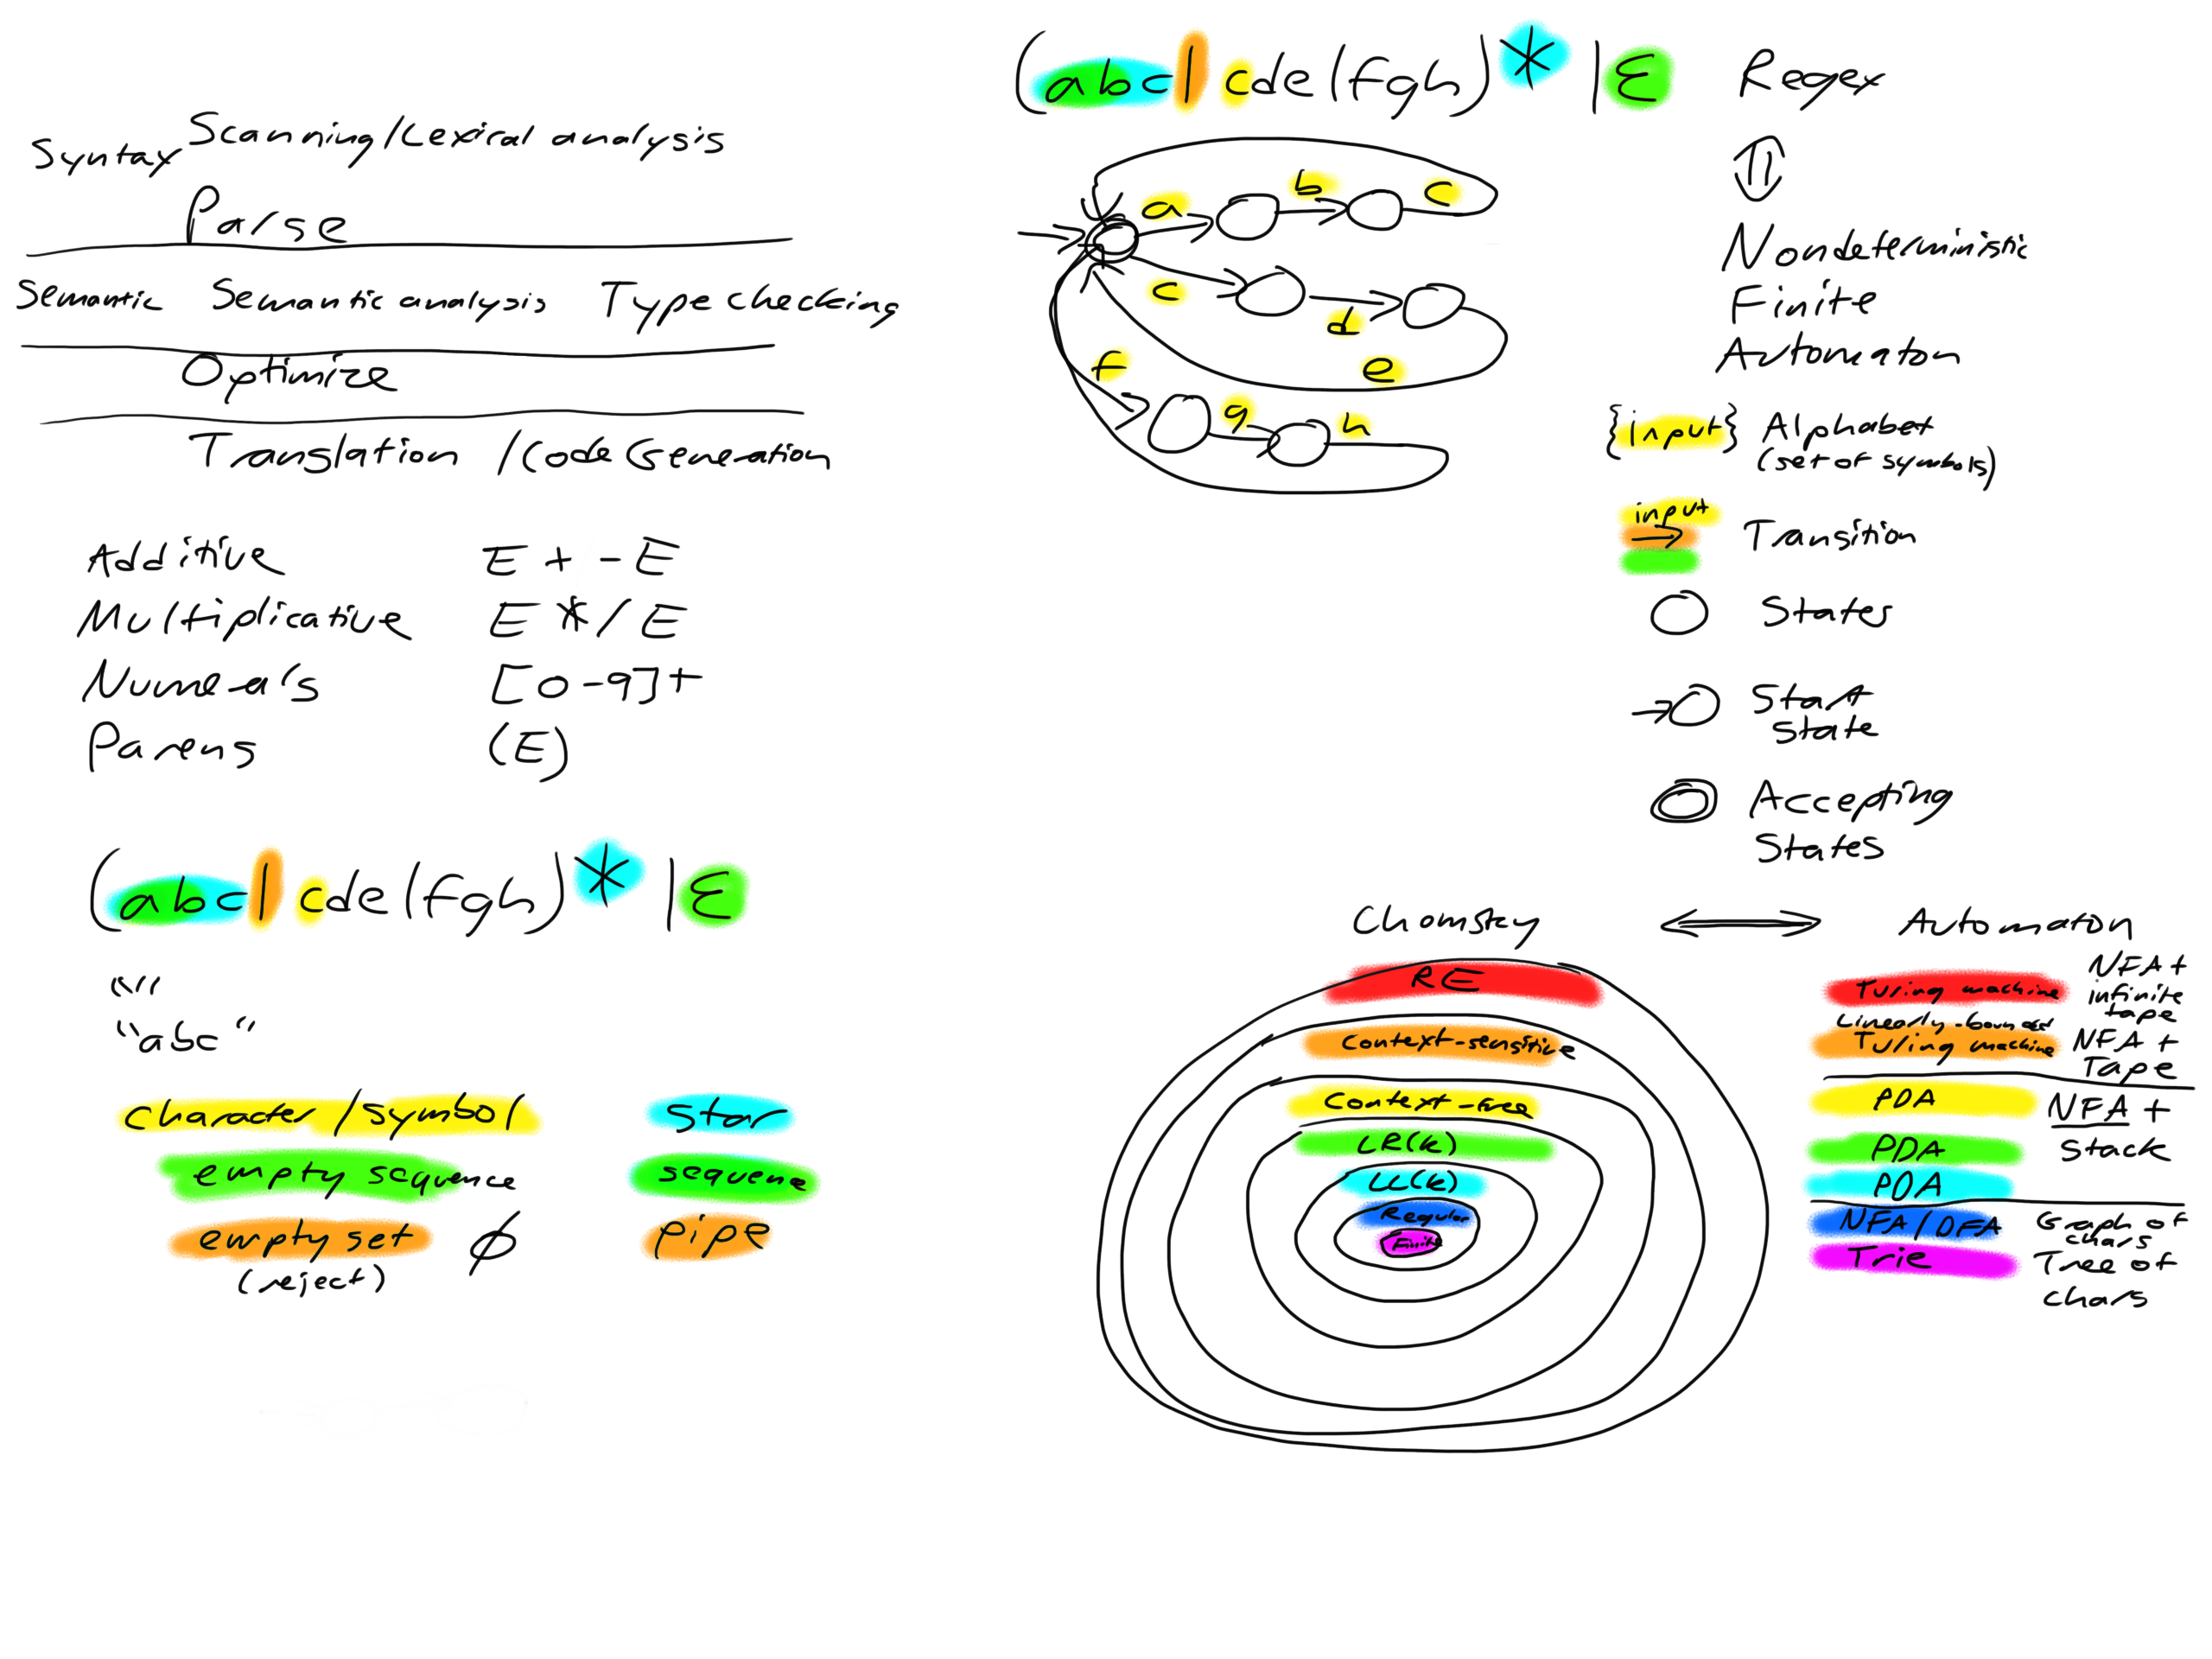 Syntax Scanning/Lexical analysis
Parse
Semantic Semantic analysis Type checking
Optimize
Translation /Code Generation
Additive E + - E
Multiplicative E * / E
Numerals [0-9]+
Parens (E)
(abc|cde|fgh)* |ε
""
"abc"
character/symbol star
empty sequence sequence
empty set ∅ pipe
(reject)
(abc|cde|fgh)* |ε Regex
a b c
c d e
f g h
⇕
Nondeterministic
Finite
Automaton
{input} Alphabet
(set of symbols)
input
→ Transition
States
Start
State
Accepting
States
Chomsky ⟺ Automaton
RE
Context-sensitive
Context-Free
LR(k)
LL(k)
Regular
Finite
Turing machine NFA +
infinite
tape
Linearly-bounded
Turing machine NFA +
Tape
PDA NFA +
PDA Stack
PDA
NFA/DFA Graph of
chars
Trie Tree of
chars